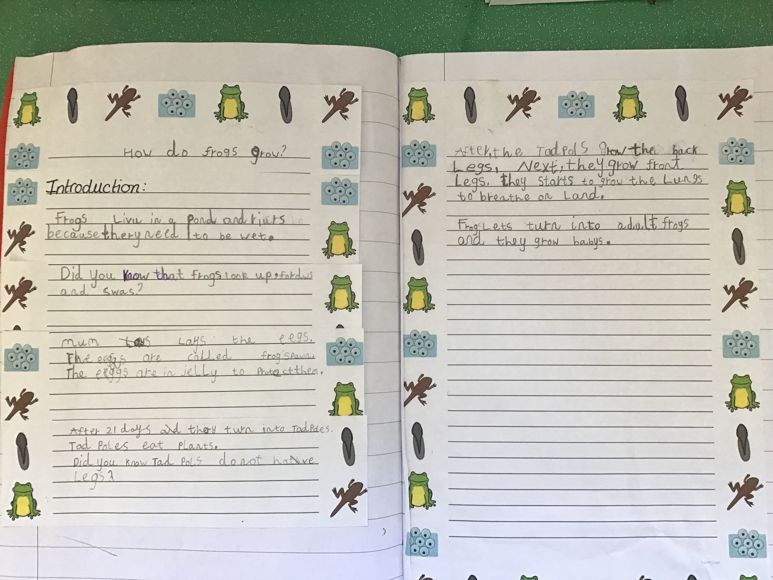 How do frogs grow?
Introduction:
Frogs Live in a Pond and
because they need to be wet.
Did you know that frogs look up
and
mum lays the eegs.
The eggs are called frogspawn.
The egggs are in jelly to Protect them.
After 21 days and they turn into TadPoles.
Tad Poles eat Plants.
Did you know Tad Pols do not have
Legs?
After, the TadPols Grow the back
Legs, Next, they grow front
Legs. they starts to grow the Lungs
to breathe on Land.
FrogLets turn into adult frogs
and they grow babys.